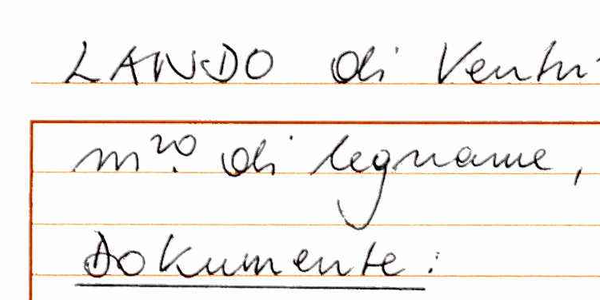 LANDO di Ventu
m.ro di legname,
Dokumente: